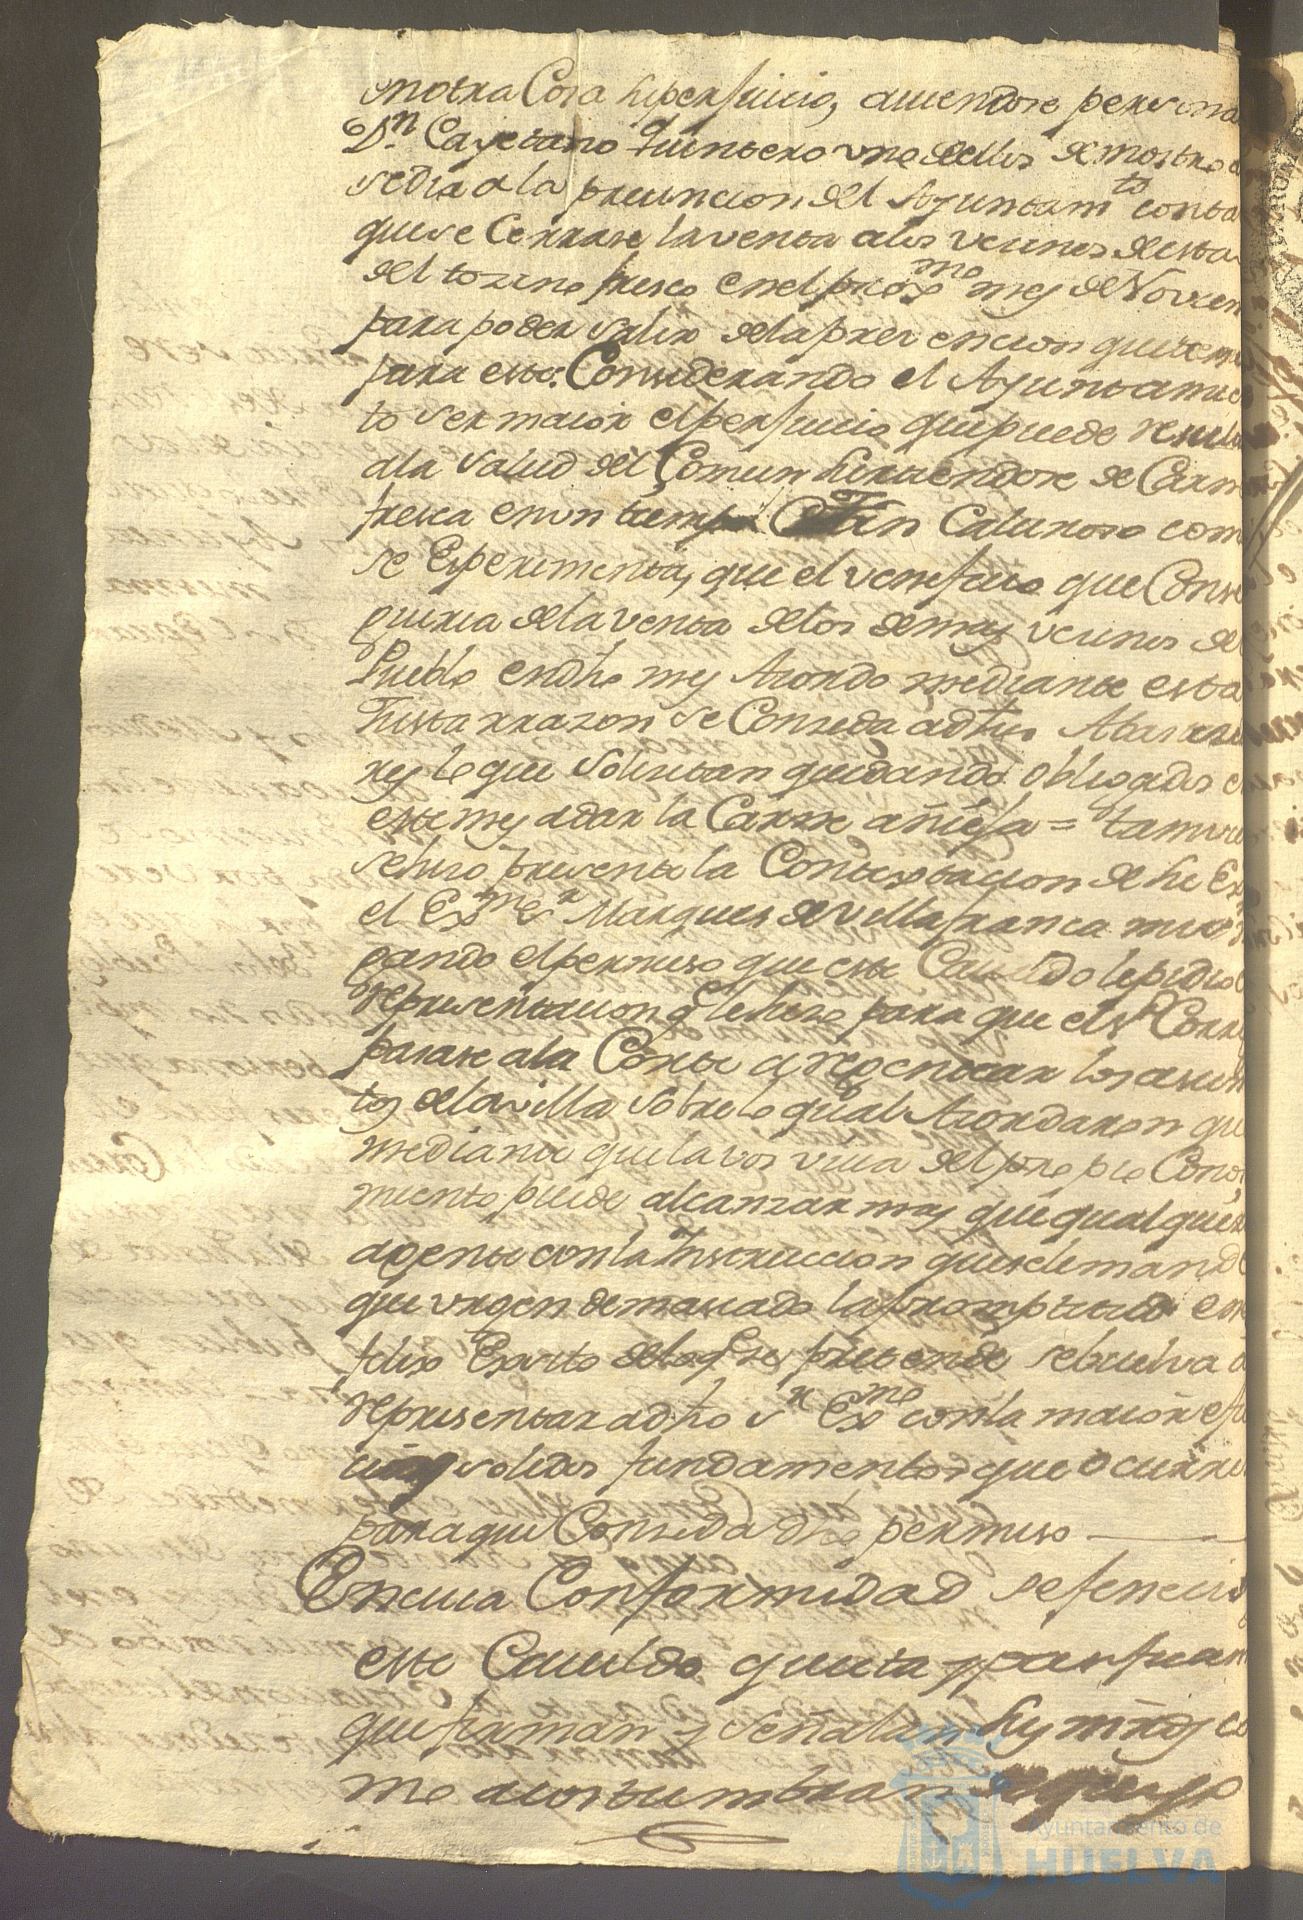 enotra Cosa hiperjuicio, auiendose persona
Dn. Cayetano Quintero uno dellos demostro
sedia ala preuencion del Ayuntamto conta
que se Cerrase la venta alos vecinos de esta
del tozino fresco en el proxmo mes de Noviem
para poder salir dela prevencion que tiene
para este: Considerando el Ayuntamien
to ser maior el perjuicio que puede resul
ala salud del Comun siruiendose de Carne
fresca en un tiempo tan Caluroso com
se Esperimenta, que el veneficio que Conse
guiria dela venta delos demas vecinos de
Pueblo en dho mes Acordo mediante esta
Justa rrazon se Conseda a dhos Abastese
res lo que solicitan quedando obligados
este mes a dar la Carne añeja = tamvie
se hizo presente la Contestacion de he
el Exmo Sr Marques de Villafranca mi
gando el permiso que este Cauildo le pidio
representacion q le hizo para que el Sr Corre
pasase ala Corte a agenciar los asun
tos dela villa sobre lo qual Acordaron qu
mediante que la vos viua del propio Conoci
miento puede alcanzar mas que qualquier
agente con la Instruccion que se le mande
que urgen demasiado la promptitud en
felix Exsito delo q se pretende se buelva
representar a dho Sr Exmo con la maior efi
solidos fundamentos que ocurre
para que Conseda dho permiso
En cuia Conformidad se fenecio
este Cauildo quieta y pasifica
que firman y señalan sus mrds co
mo acostumbran de que doy fe
Ayuntamiento de
HUELVA